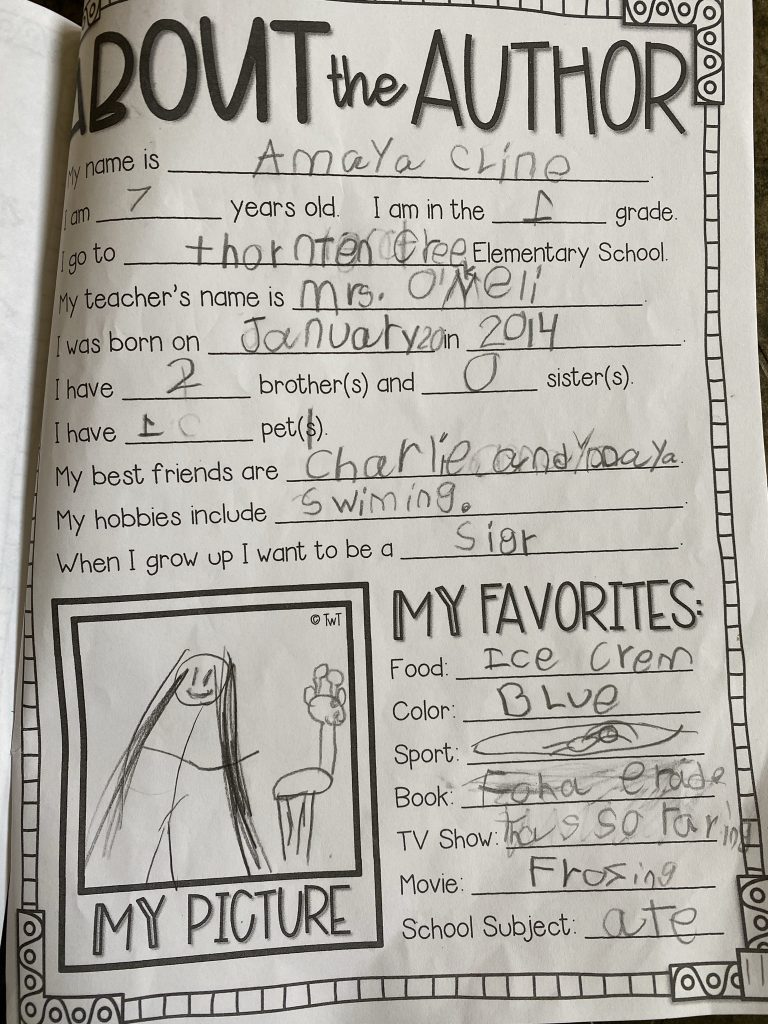 ABOUT the AUTHOR
My name is Amaya Cline.
I am 7 years old. I am in the 1 grade.
I go to thornten Cree Elementary School.
My teacher's name is mrs. O'Neli.
I was born on January 20 in 2014.
I have 2 brother(s) and 0 sister(s).
I have 1 pet(s).
My best friends are Charlie and.
My hobbies include Swiming.
When I grow up I want to be a.
© TwT
MY PICTURE
MY FAVORITES:
Food: Ice Crem
Color: BLue
Sport:
Book:
TV Show:
Movie: Frozing
School Subject: ate